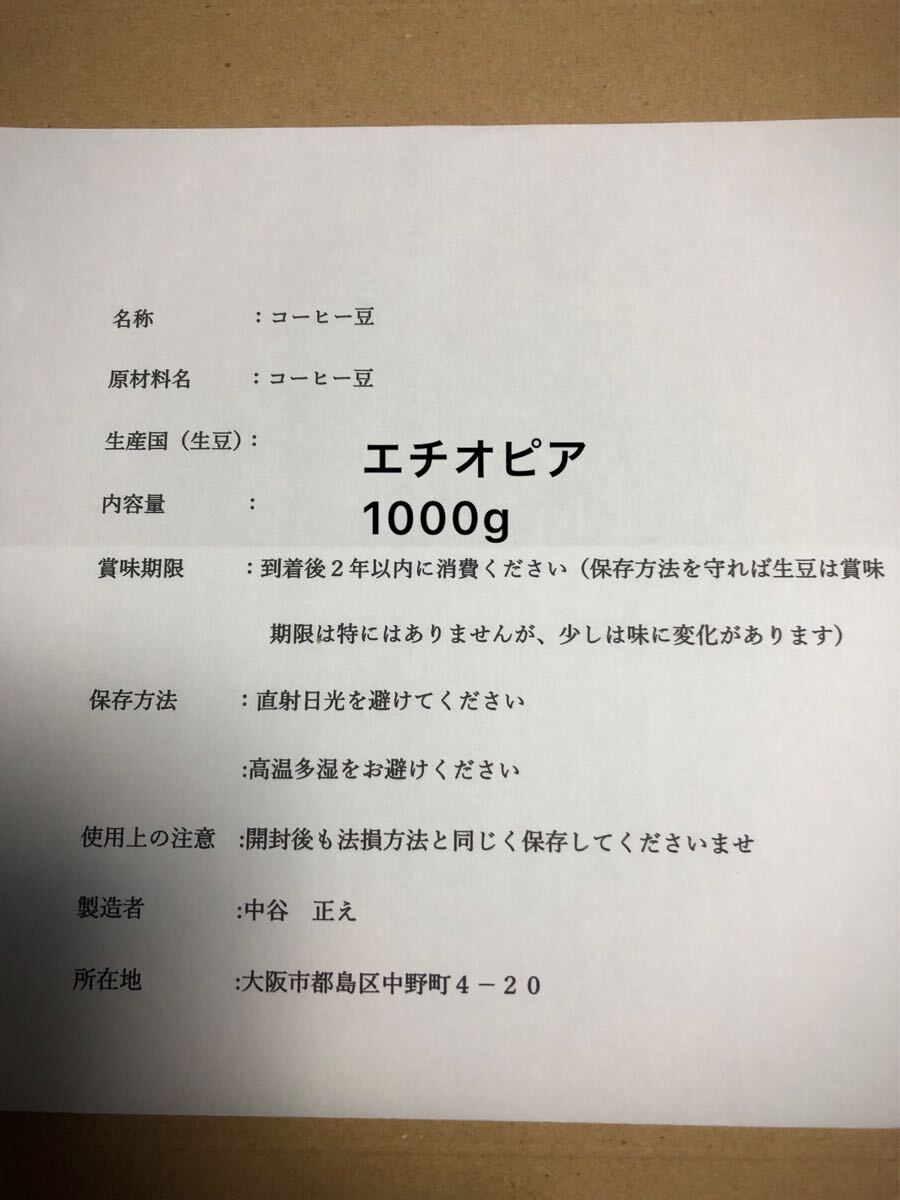 名称　：コーヒー豆
原材料名　：コーヒー豆
生産国（生豆）：エチオピア
内容量　：1000g
賞味期限　：到着後２年以内に消費ください（保存方法を守れば生豆は賞味
期限は特にはありませんが、少しは味に変化があります）
保存方法　：直射日光を避けてください
:高温多湿をお避けください
使用上の注意　:開封後も法損方法と同じく保存してくださいませ
製造者　:中谷　正え
所在地　:大阪市都島区中野町４－２０